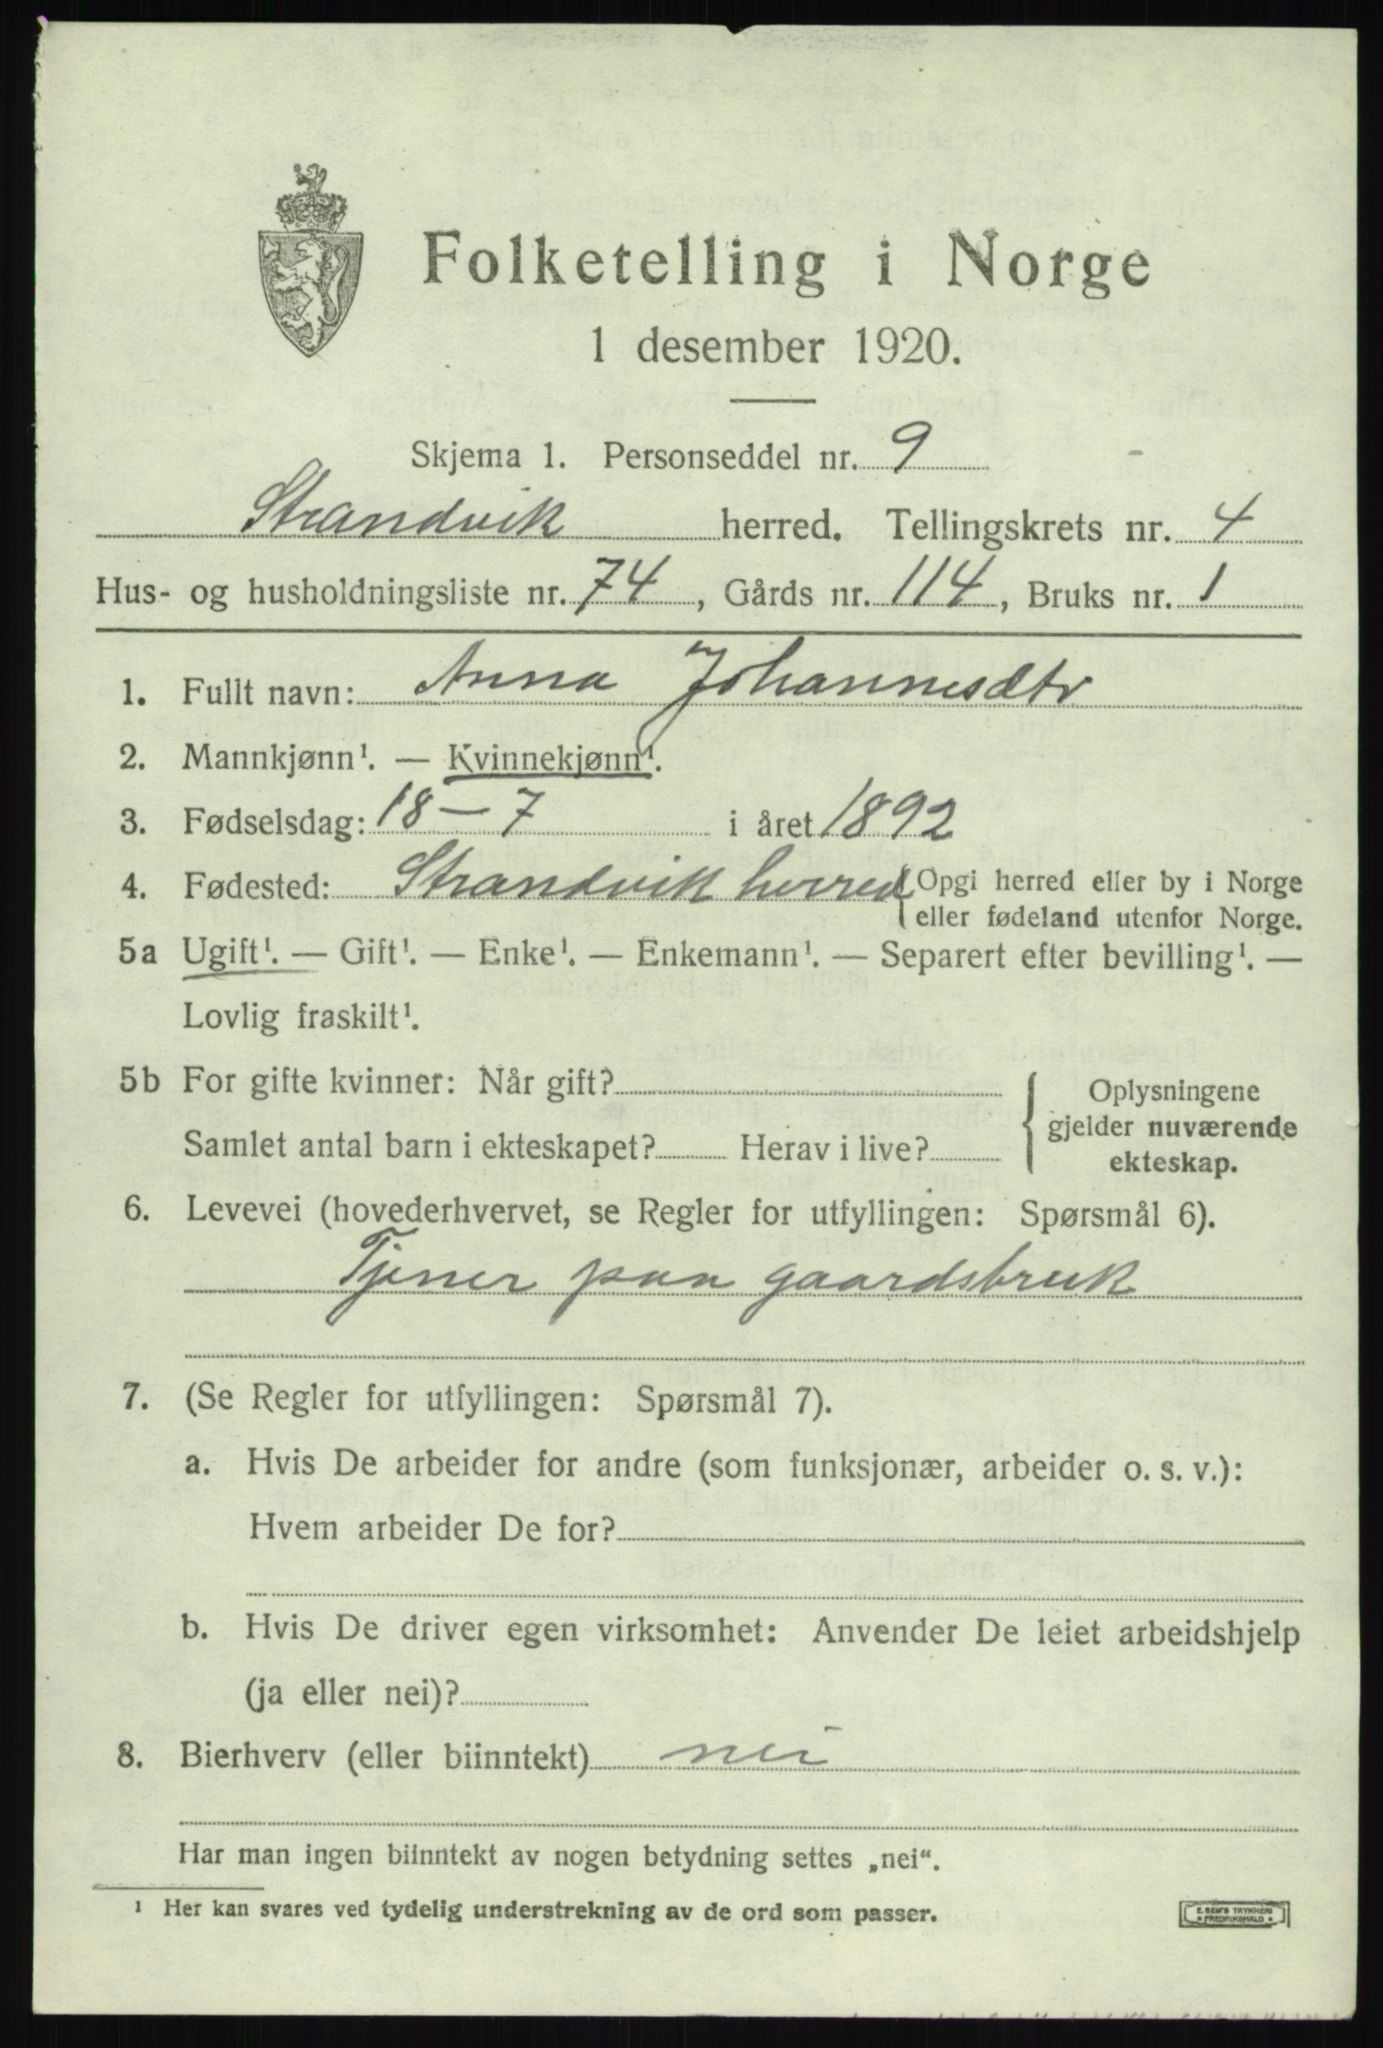 Folketelling i Norge
1 desember 1920.
Skjema 1. Personseddel nr. 9
Strandvik herred. Tellingskrets nr. 4
Hus- og husholdningsliste nr. 74, Gårds nr. 114, Bruks nr. 1
1. Fullt navn: Anna Johannesdtr
2. Mannkjønn¹. — Kvinnekjønn¹.
3. Fødselsdag: 18 – 7 i året 1892
4. Fødested: Strandvik herred { Opgi herred eller by i Norge
eller fødeland utenfor Norge.
5a Ugift¹. — Gift¹. — Enke¹. — Enkemann¹. — Separert efter bevilling¹. —
Lovlig fraskilt¹.
5b For gifte kvinner: Når gift?
Samlet antal barn i ekteskapet? Herav i live?
{ Oplysningene
gjelder nuværende
ekteskap.
6. Levevei (hovederhvervet, se Regler for utfyllingen: Spørsmål 6).
Tjener paa gaardsbruk
7. (Se Regler for utfyllingen: Spørsmål 7).
a. Hvis De arbeider for andre (som funksjonær, arbeider o. s. v.):
Hvem arbeider De for?
b. Hvis De driver egen virksomhet: Anvender De leiet arbeidshjelp
(ja eller nei)?
8. Bierhverv (eller biinntekt) nei
Har man ingen biinntekt av nogen betydning settes „nei“.
¹ Her kan svares ved tydelig understrekning av de ord som passer.
E. SEM'S TRYKKERI
* FREDRIKSHALD *